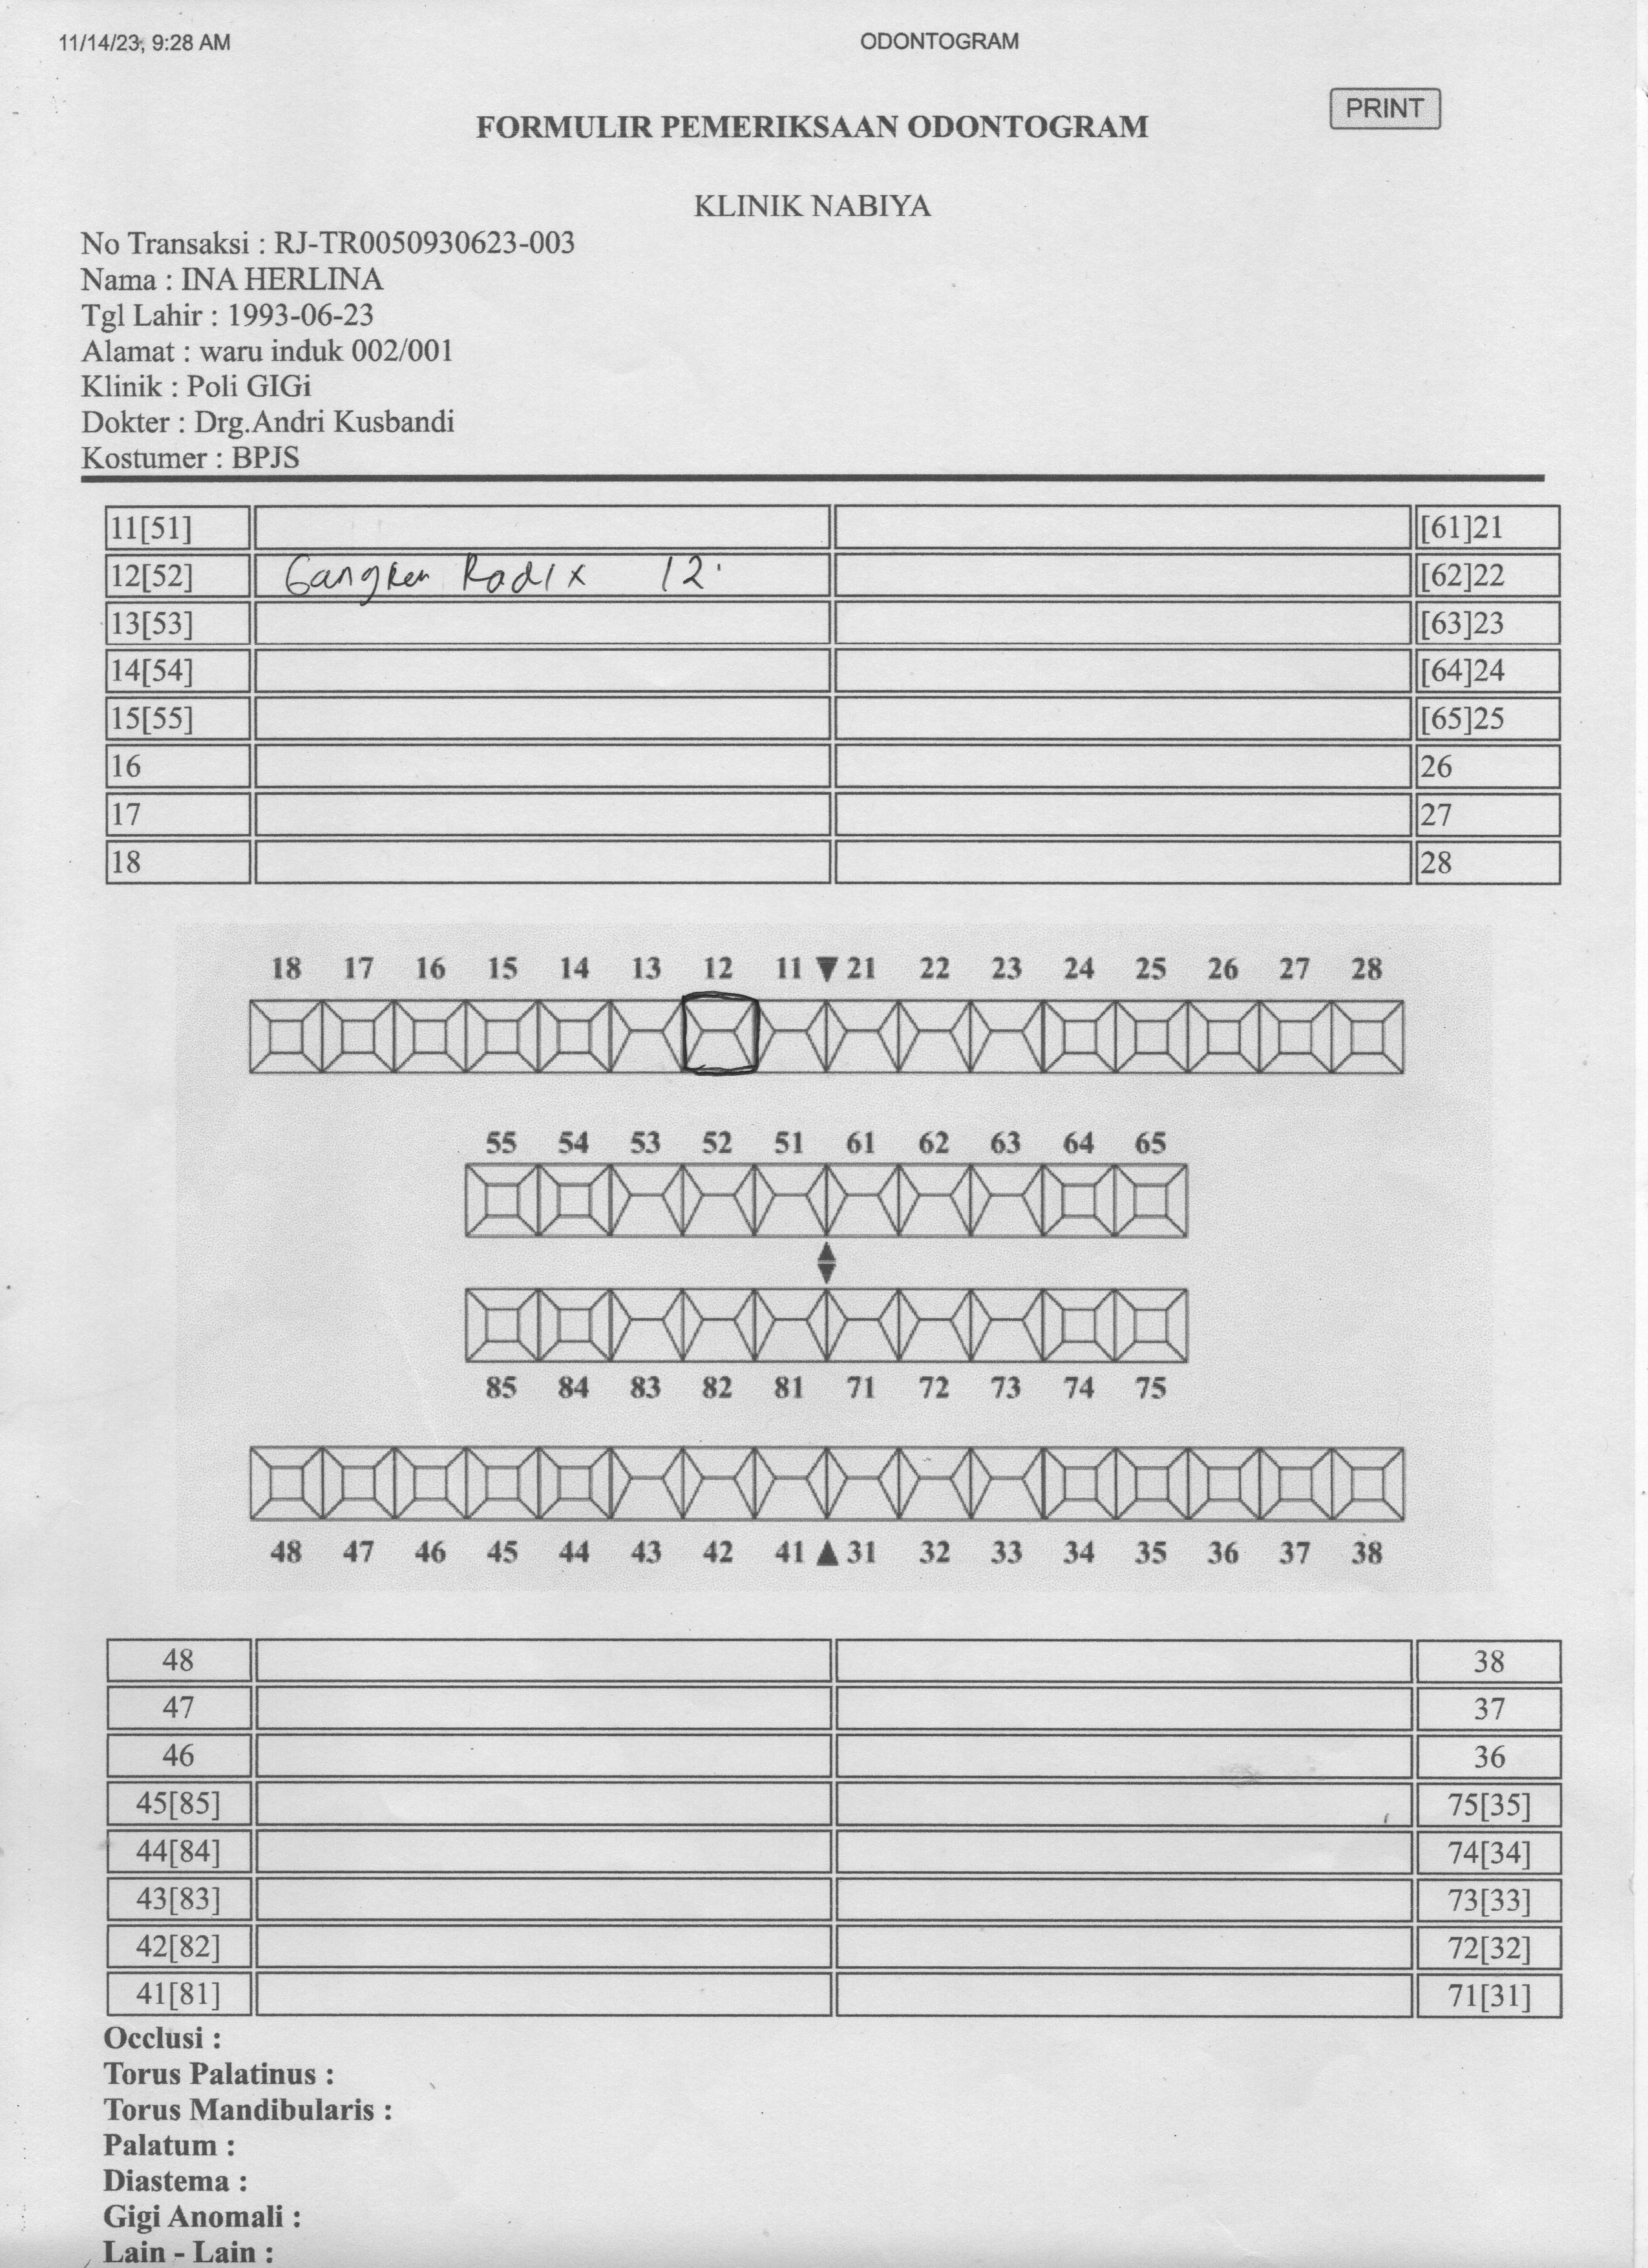 11/14/23, 9:28 AM ODONTOGRAM
PRINT
FORMULIR PEMERIKSAAN ODONTOGRAM
KLINIK NABIYA
No Transaksi : RJ-TR0050930623-003
Nama : INA HERLINA
Tgl Lahir : 1993-06-23
Alamat : waru induk 002/001
Klinik : Poli GIGi
Dokter : Drg.Andri Kusbandi
Kostumer : BPJS
11[51] [61]21
12[52] Gangren Radix 12 [62]22
13[53] [63]23
14[54] [64]24
15[55] [65]25
16 26
17 27
18 28
18 17 16 15 14 13 12 11 ▼ 21 22 23 24 25 26 27 28
55 54 53 52 51 61 62 63 64 65
85 84 83 82 81 71 72 73 74 75
48 47 46 45 44 43 42 41 ▲ 31 32 33 34 35 36 37 38
48 38
47 37
46 36
45[85] 75[35]
44[84] 74[34]
43[83] 73[33]
42[82] 72[32]
41[81] 71[31]
Occlusi :
Torus Palatinus :
Torus Mandibularis :
Palatum :
Diastema :
Gigi Anomali :
Lain - Lain :